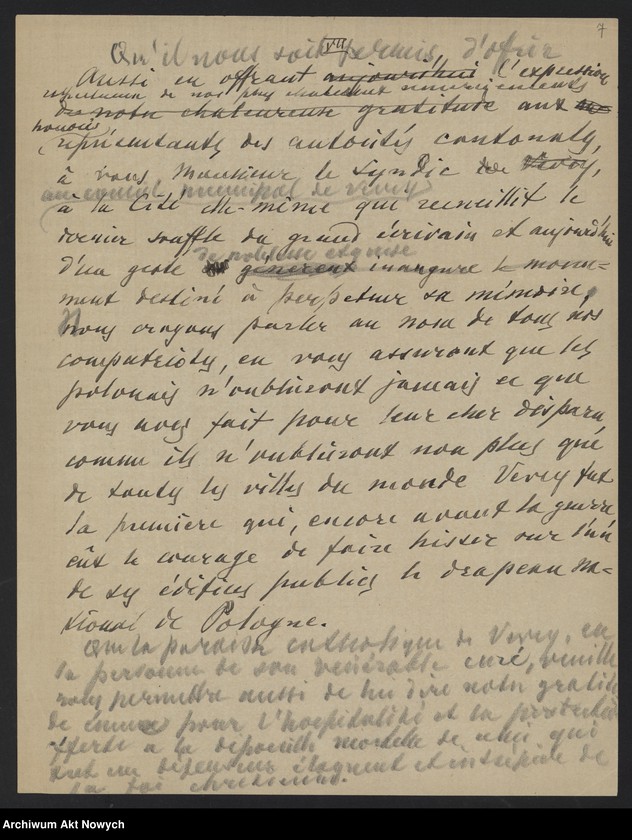 7
VII
Qu'il nous soit permis d'ofrir
Aussi en offrant aujourd'hui l'expression
de nos plus chaleureux remerciements
de notre chaleureuse gratitude aux
représentants des autorités cantonales,
à vous, Monsieur le Syndic de Vevey,
au conseil municipal de Vevey
à la Cité elle-même qui recueillit le
dernier souffle du grand écrivain et aujourd'hui
de noblesse exquise
d'un geste généreux inaugure le monu-
ment destiné à perpétuer sa mémoire,
Nous croyons parler au nom de tous nos
compatriotes, en vous assurant que les
polonais n'oublieront jamais ce que
vous avez fait pour leur cher disparu
comme ils n'oublieront non plus que
de toutes les villes du monde Vevey fut
la première qui, encore avant la guerre
eût le courage de faire hisser sur l'un
de ses édifices publics le drapeau na-
tional de Pologne.
Que la paroisse catholique de Vevey, en
la personne de son vénérable curé, veuille
nous permettre aussi de lui dire notre gratitu
de émue pour l'hospitalité et la protection
offerte à la dépouille mortelle de celui qui
fut un défenseur éloquent et intrépide de
la foi chrétienne.
Archiwum Akt Nowych